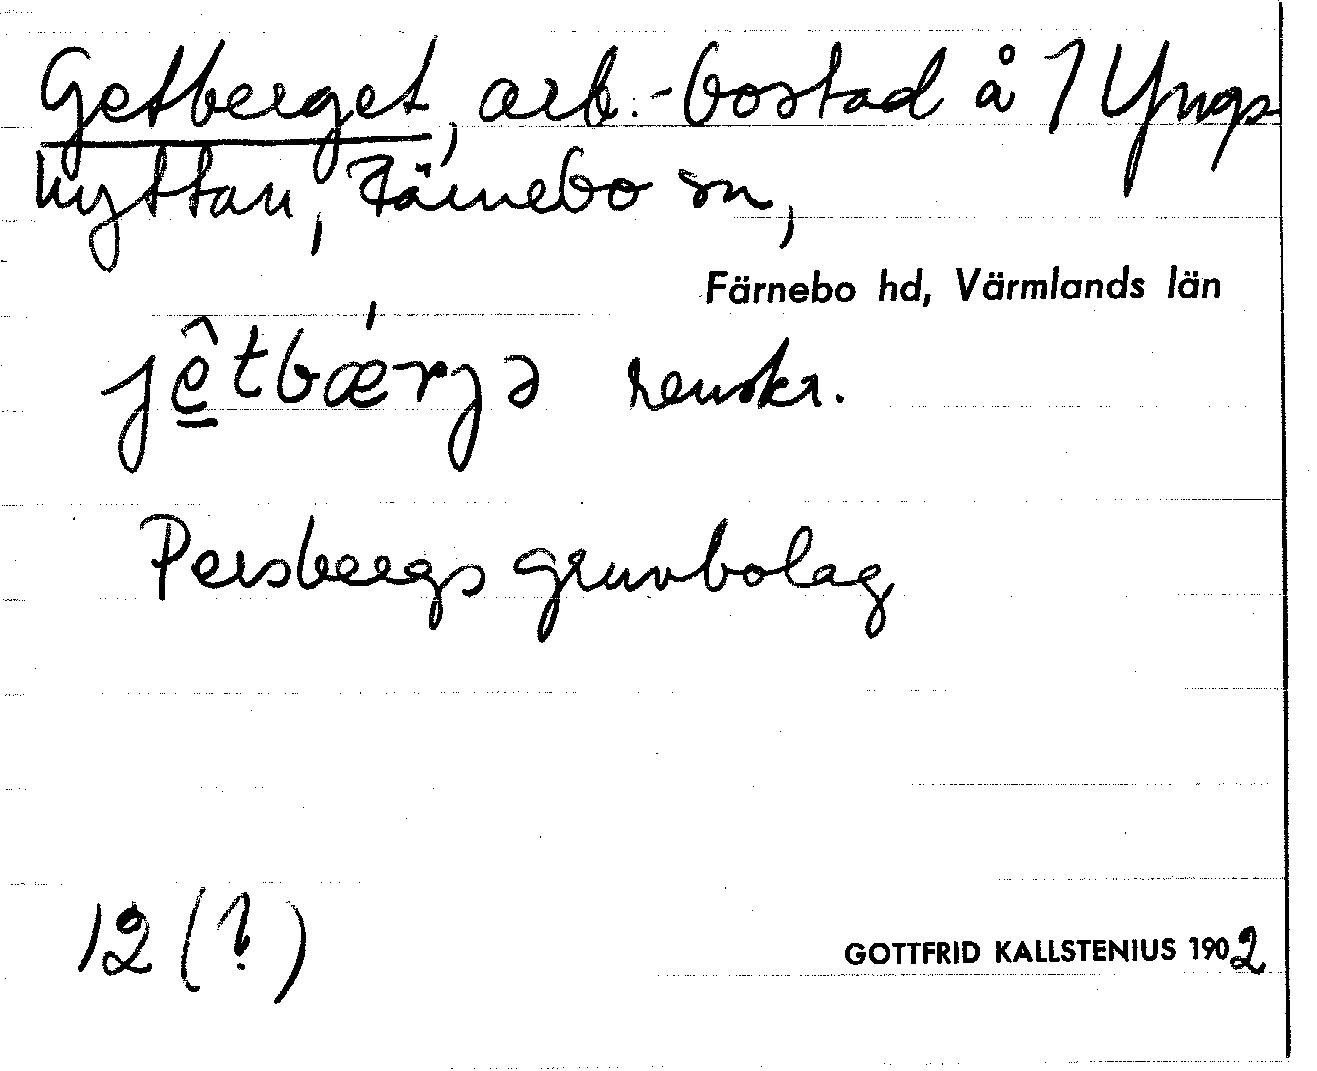 Getberget, arb.-bostad å 1 Yngs
hyttan, Färnebo sn,
Färnebo hd, Värmlands län
jê̱tbǽrjə renskr.
Persbergs gruvbolag
12 (?)
GOTTFRID KALLSTENIUS 1902